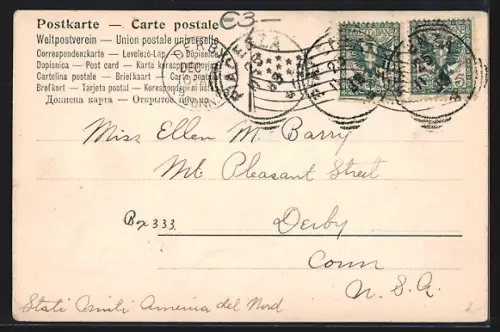 Postkarte — Carte postale
€3—
Weltpostverein — Union postale universelle
Correspondenzkarte — Levelező-Lap — Dopisnice
Dopisnica — Post card — Karta korespondencyjna
Cartolina postale — Briefkaart — Cartão postal
Brefkort — Tarjeta postal — Korespondenčni listek
Дописна карта — Открытое письмо
DERBY
CONN.
Miss Ellen M. Barry
Mt Pleasant Street
Box 333.
Derby
Conn
U. S. A.
Stati Uniti America del Nord